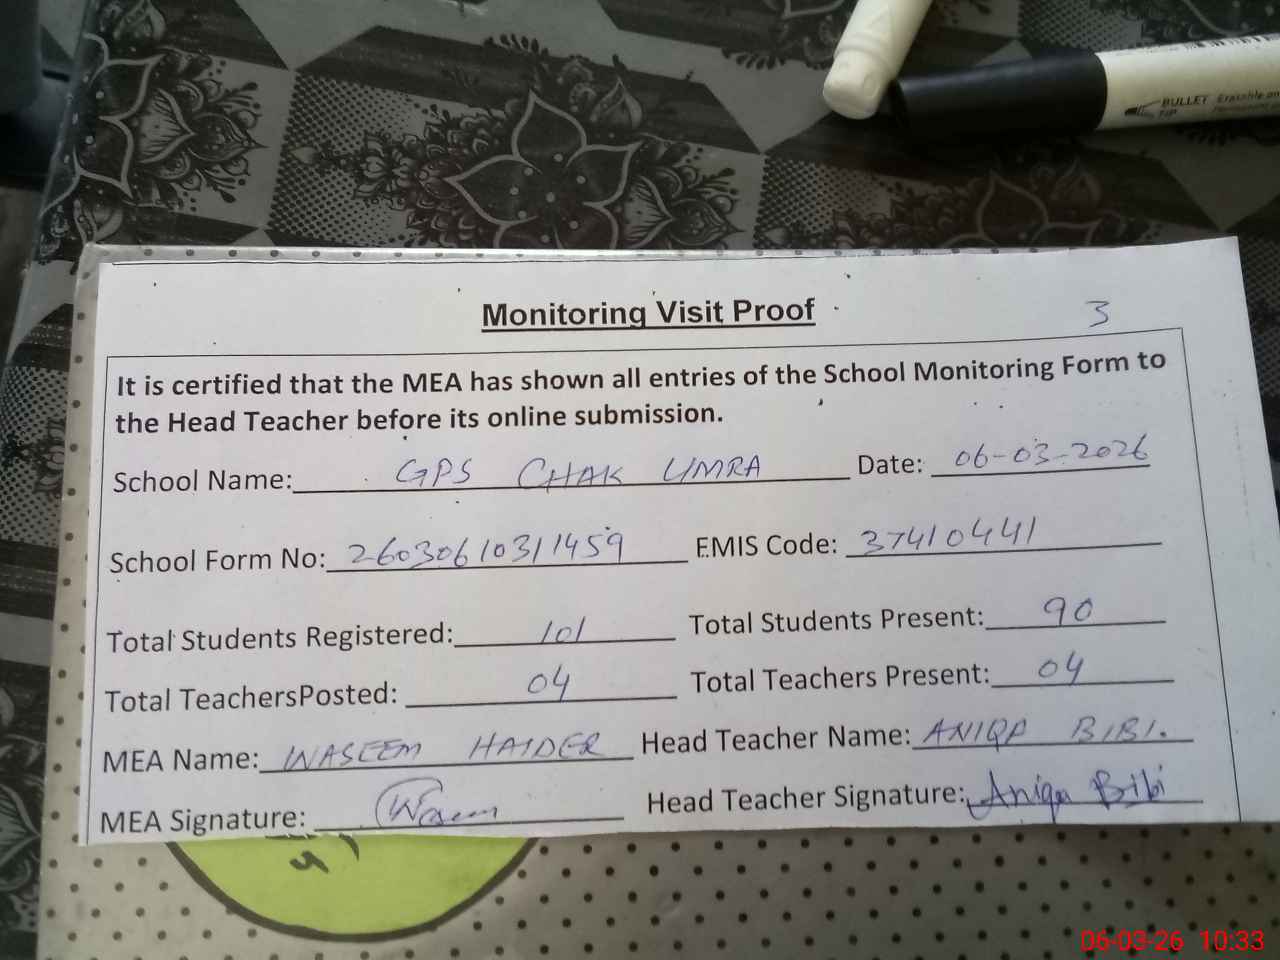 BULLET TIP Erasable on
Monitoring Visit Proof
3
It is certified that the MEA has shown all entries of the School Monitoring Form to
the Head Teacher before its online submission.
School Name: GPS CHAK UMRA Date: 06-03-2026
School Form No: 26030610311459 EMIS Code: 37410441
Total Students Registered: 101 Total Students Present: 90
Total TeachersPosted: 04 Total Teachers Present: 04
MEA Name: WASEEM HAIDER Head Teacher Name: ANIQA BIBI.
MEA Signature: Wasem Head Teacher Signature: Aniqa Bibi
06-03-26 10:33